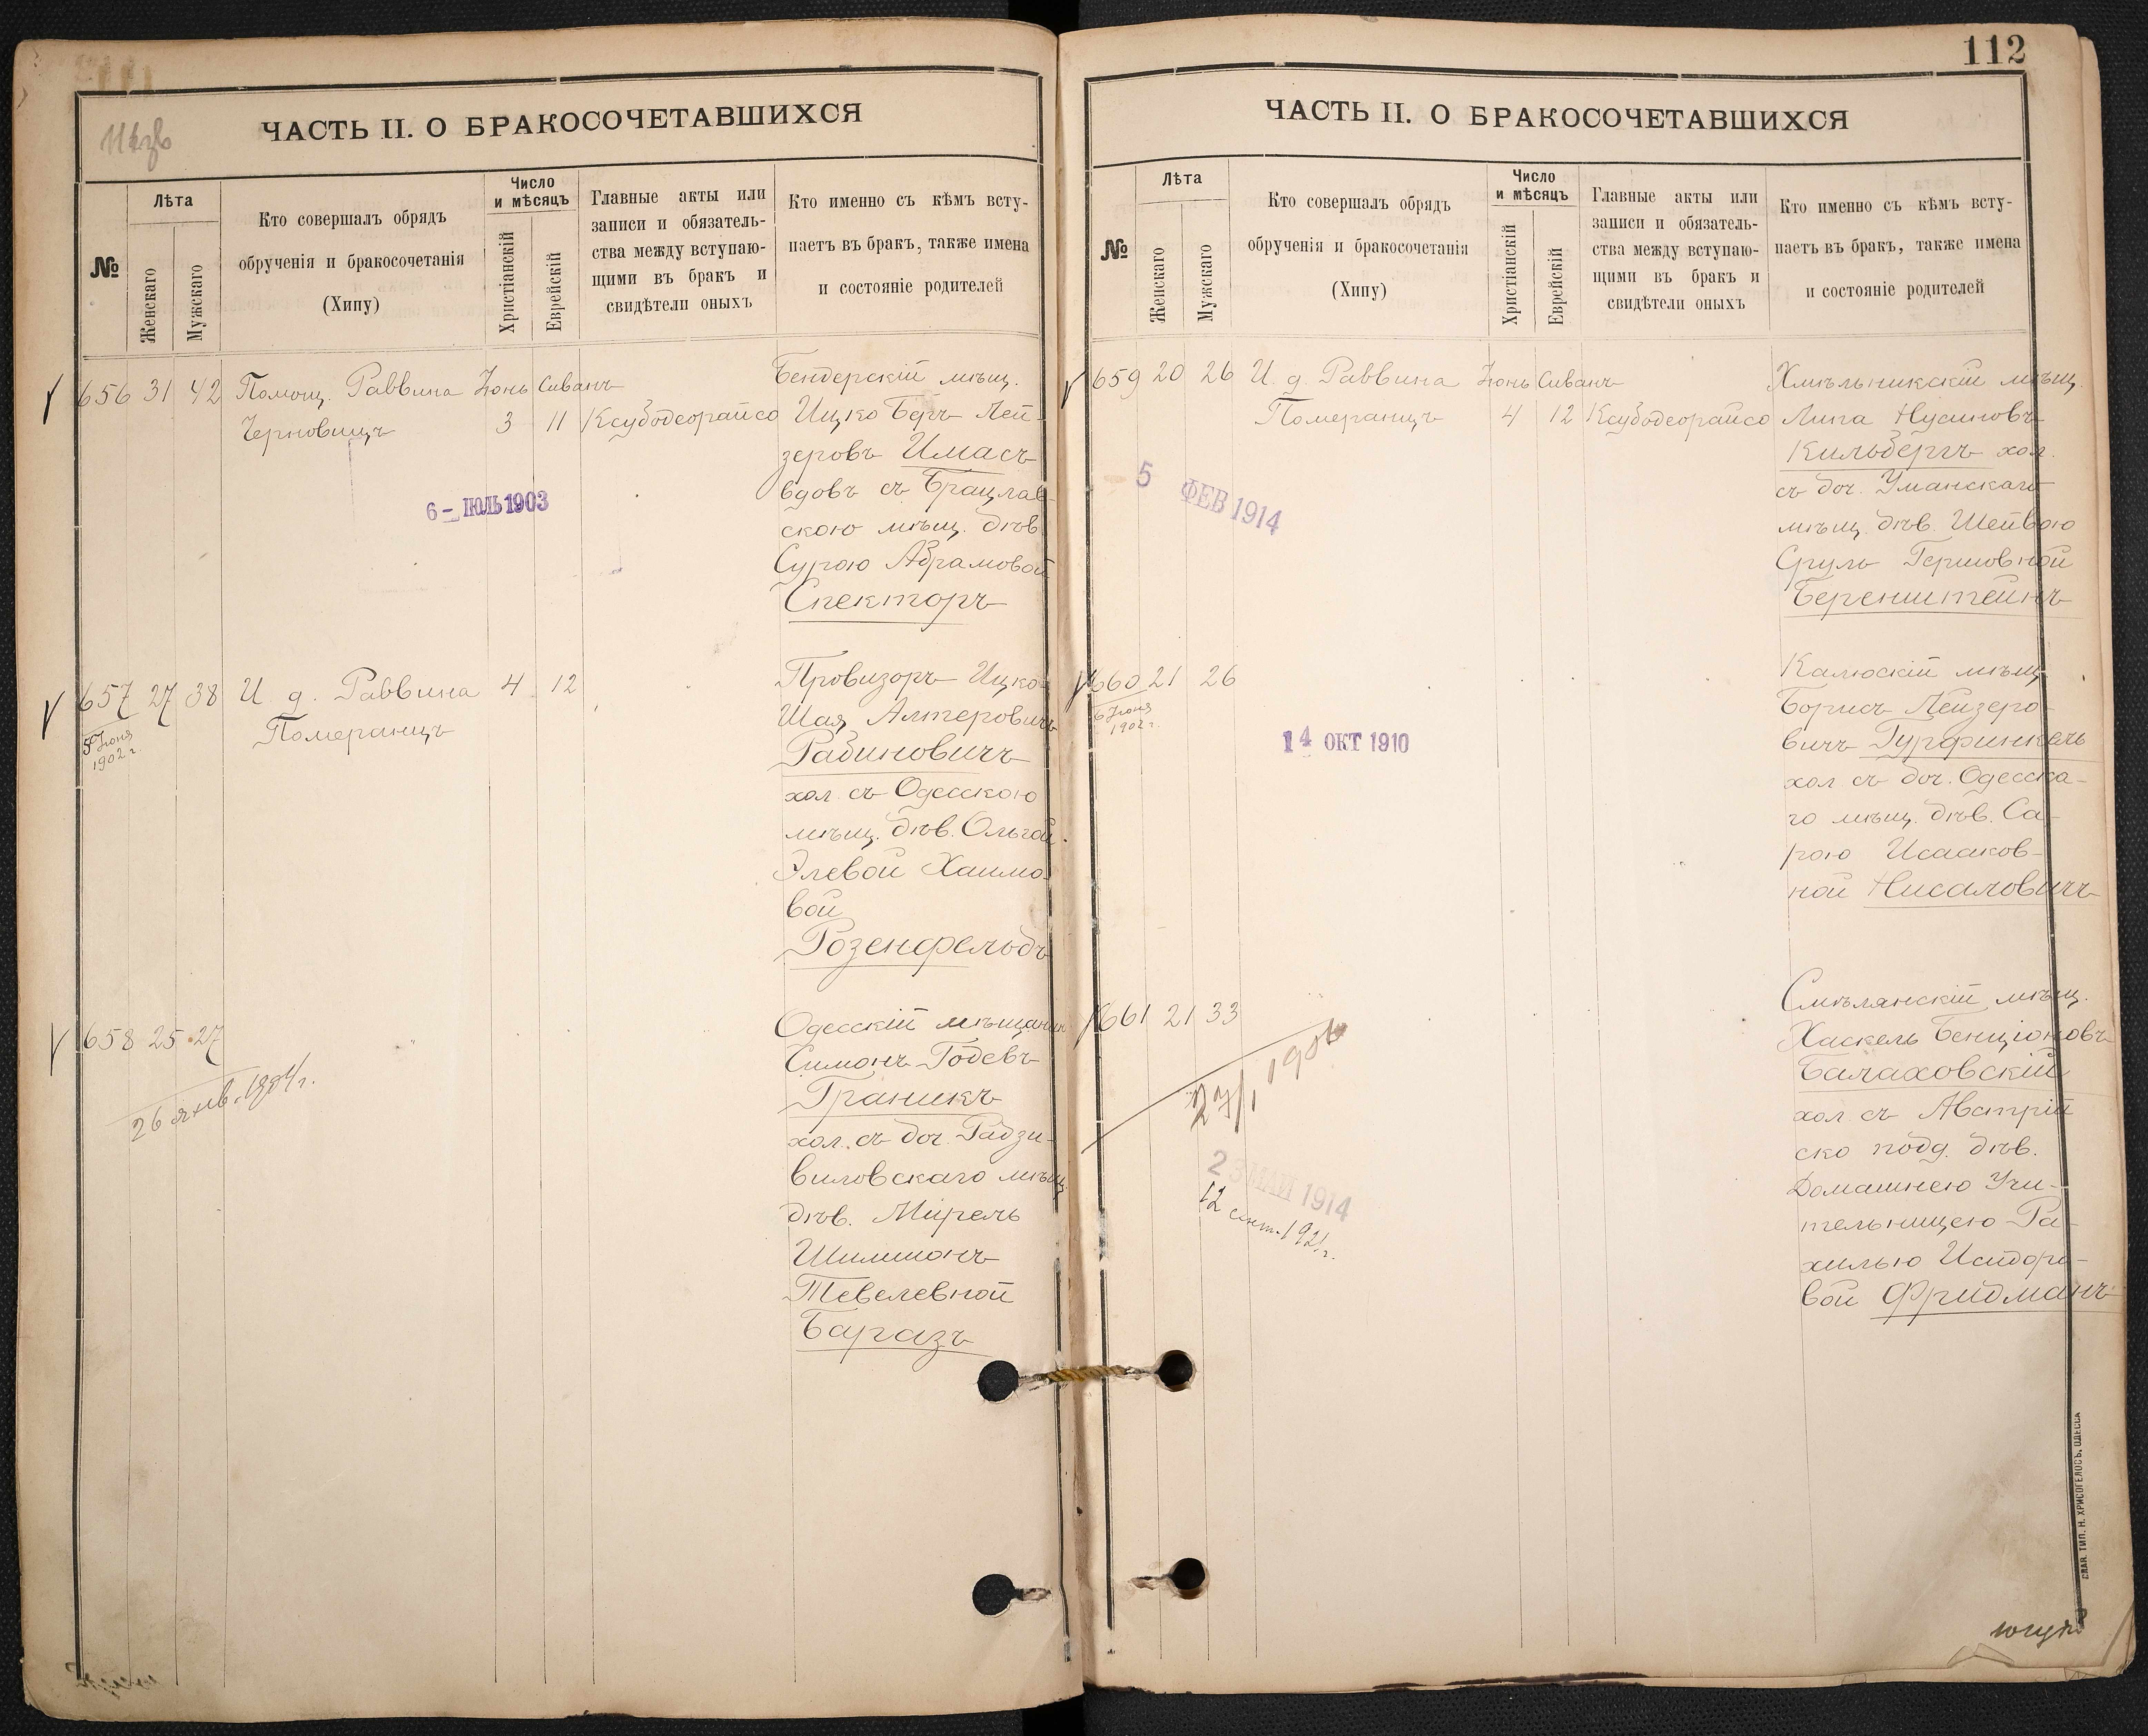 ЧАСТЬ II. О БРАКОСОЧЕТАВШИХСЯ
№
Лѣта
Женскаго
Мужскаго
Кто совершалъ обрядъ
обрученія и бракосочетанія
(Хипу)
Число
и мѣсяцъ
Христіанскій
Еврейскій
Главные акты или
записи и обязатель-
ства между вступаю-
щими въ бракъ и
свидѣтели оныхъ
Кто именно съ кѣмъ всту-
паетъ въ бракъ, также имена
и состояніе родителей
656 31 42 Помощ. Раввина Іюнь Сиванъ
Черновицъ 3 11 Ксубодеорайсо
6 - ІЮЛЬ 1903
Бендерскій мѣщ.
Ицко Беръ Лей-
зеровъ Имасъ
вдовъ съ Брацлав-
скою мѣщ. дѣв.
Сурою Абрамовой
Спекторъ
657 27 38 И д. Раввина 4 12
Померанцъ
5 Іюня
1902 г.
Провизоръ Ицко-
Шая Алтеровичъ
Рабиновичъ
хол. съ Одесскою
мѣщ. дѣв. Ольгой-
Элевой Хаимо-
вой
Розенфельдъ
658 25 27
26 янв. 1904 г.
Одесскій мѣщанин
Симонъ Годевъ
Граникъ
хол. съ доч. Радзи-
виловскаго мѣщ.
дѣв. Мирель
Шимшонъ
Тевелевной
Баразъ
112
ЧАСТЬ II. О БРАКОСОЧЕТАВШИХСЯ
№
Лѣта
Женскаго
Мужскаго
Кто совершалъ обрядъ
обрученія и бракосочетанія
(Хипу)
Число
и мѣсяцъ
Христіанскій
Еврейскій
Главные акты или
записи и обязатель-
ства между вступаю-
щими въ бракъ и
свидѣтели оныхъ
Кто именно съ кѣмъ всту-
паетъ въ бракъ, также имена
и состояніе родителей
659 20 26 И. д. Раввина Іюнь Сиванъ
Померанцъ 4 12 Ксубодеорайсо
5 ФЕВ 1914
Хмѣльникскій мѣщ.
Липа Нусиновъ
Кильбергъ хол.
съ доч. Уманскаго
мѣщ. дѣв. Шейвою
Сруль Гершовной
Беренштейнъ
660 21 26
6 Іюня
1902 г.
14 ОКТ 1910
Калюскій мѣщ.
Борисъ Лейзеро-
вичъ Гурфинкель
хол. съ доч. Одесска-
го мѣщ. дѣв. Са-
рою Исааков-
ной Нисаловичъ
661 21 33
23 МАЙ 1914
12 сент. 1921 г.
Смѣлянскій мѣщ.
Хаскель Бенціоновъ
Балаховскій
хол. съ Австрій
ско подд. дѣв.
Домашнею Учи-
тельницею Ра-
хилью Исидоро-
вой Фридманъ
СЛАВ. ТИП. Н. ХРИСОГЕЛОСЪ, ОДЕССА